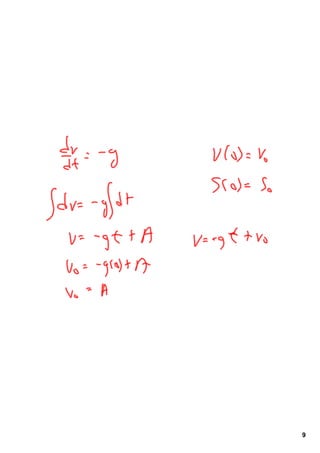 dv/dt = -g
V(0) = V₀
S(0) = S₀
∫dv = -g∫dt
V = -gt + A
V = -gt + v₀
V₀ = -g(0) + A
V₀ = A
9